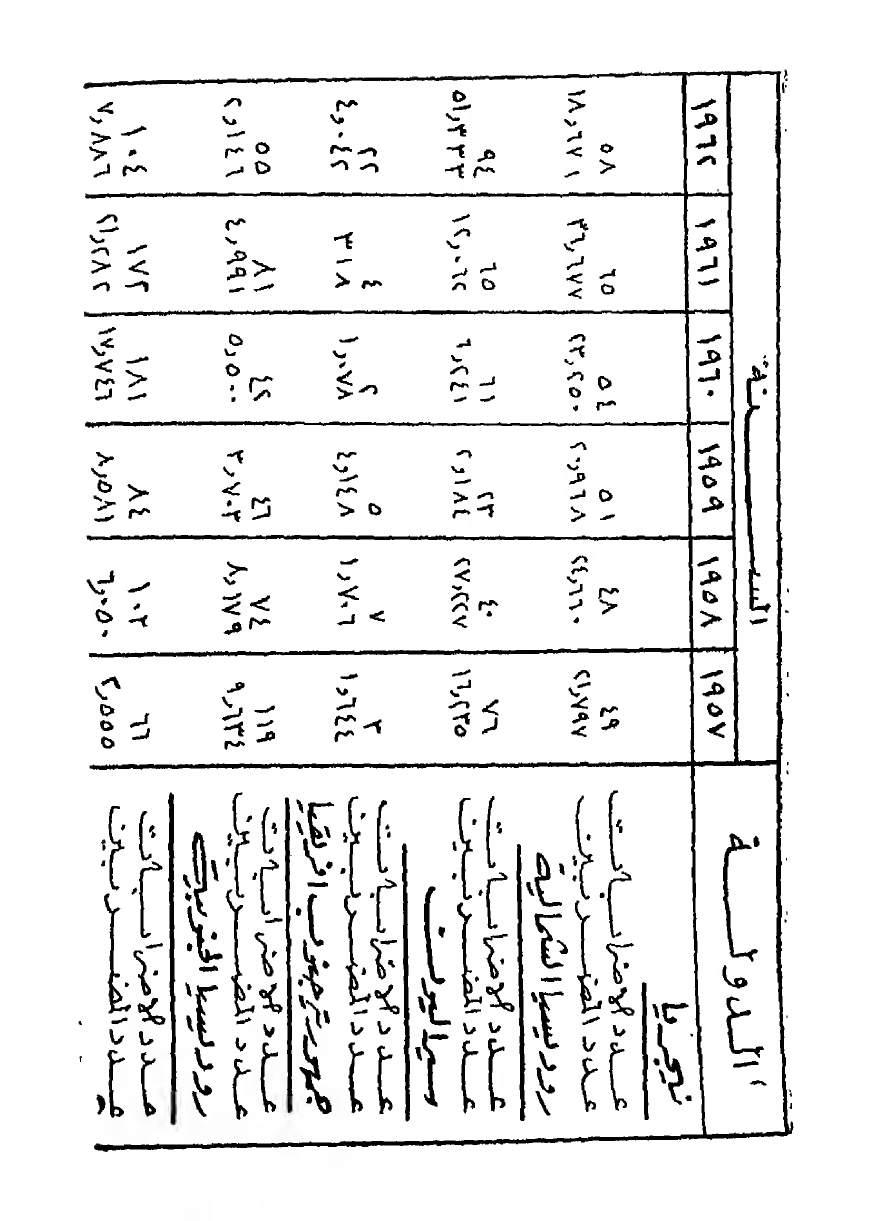 الدولة السنة
١٩٥٧ ١٩٥٨ ١٩٥٩ ١٩٦٠ ١٩٦١ ١٩٦٢
نيجريا
عدد الاضرابات ٤٩ ٤٨ ٥١ ٥٤ ٦٥ ٥٨
عدد المضربين ٢١,٧٩٧ ٢٤,٦٦٠ ٢٠,٩٦٨ ٢٣,٢٥٠ ٣٦,٦٧٧ ١٨,٦٧١
روديسيا الشمالية
عدد الاضرابات ٧٦ ٤٠ ٢٣ ٦١ ٦٥ ٩٤
عدد المضربين ١٦,٢٣٥ ٢٧,٢٢٧ ٢,١٨٤ ٦,٢٤١ ١٢,٠٦٢ ٥١,٣٣٣
سيراليون
عدد الاضرابات ٣ ٧ ٥ ٢ ٤ ٢٢
عدد المضربين ١,٦٤٤ ١,٧٠٦ ٤,١٤٨ ١,٠٧٨ ٣١٨ ٤,٠٤٢
جمهورية جنوب افريقيا
عدد الاضرابات ١١٩ ٧٤ ٤٦ ٤٢ ٨١ ٥٥
عدد المضربين ٩,٦٣٤ ٨,١٧٩ ٣,٧٠٣ ٥,٥٠٠ ٤,٩٩١ ٢,١٤٦
روديسيا الجنوبية
عدد الاضرابات ٦٦ ١٠٣ ٨٤ ١٨١ ١٧٢ ١٠٤
عدد المضربين ٢,٥٥٥ ٦,٠٥٠ ٨,٥٨١ ١٧,٧٤٦ ٢١,٢٨٢ ٧,٨٨٦